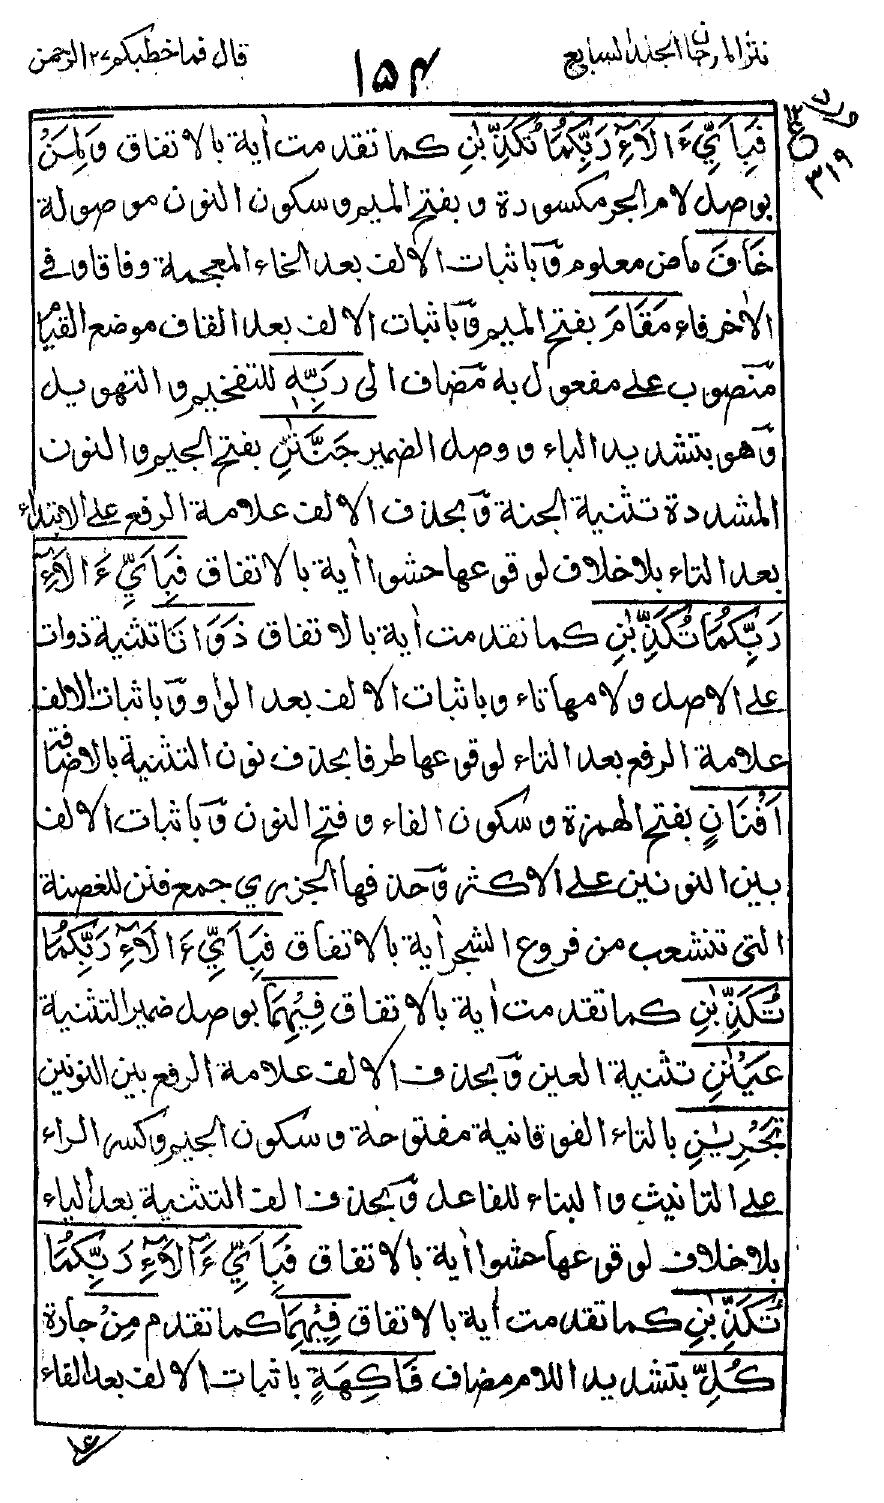 نثر المرجان الجلد السابع
١٥٤
قال فما خطبكم ٢٧ الرحمن
٣١٩
فَبِاَيِّ ءَالَآءِ رَبِّكُمَا تُكَذِّبٰنِ كما تقدمت أية بالاتفاق وَلِمَنْ
بوصل لام الجر مكسورة وبفتح الميم وسكون النون موصولة
خَافَ ماض معلوم وّباثبات الالف بعد الخاء المعجمة وفاقا وفي
الأخر فاء مَقَامَ بفتح الميم وّباثبات الالف بعد القاف موضع القيام
مّنصوب على مفعول به مّضاف الى رَبِّهٖ للتفخيم والتهويل
وّهو بتشديد الباء ووصل الضمير جَنَّتٰنِ بفتح الجيم والنون
المشددة تثنية الجنة وّبحذف الالف علامة الرفع على الابتداء
بعد التاء بلاخلاف لوقوعها حشوا أية بالاتفاق فَبِاَيِّ ءَالَآءِ
رَبِّكُمَا تُكَذِّبٰنِ كما تقدمت أية بالاتفاق ذَوَاتَا تثنية ذوات
على الاصل ولامها تاء وباثبات الالف بعد الواو وّباثبات الالف
علامة الرفع بعد التاء لوقوعها طرفا بحذف نون التثنية بالاضافة
اَفْنَانٍ بفتح الهمزة وسكون الفاء وفتح النون وّباثبات الالف
بين النونين على الاكثر وّحذفها الجزري جمع فنن للغصنة
التي تنشعب من فروع الشجر أية بالاتفاق فَبِاَيِّ ءَالَآءِ رَبِّكُمَا
تُكَذِّبٰنِ كما تقدمت أية بالاتفاق فِيْهِمَا بوصل ضمير التثنية
عَيْنٰنِ تثنية العين وّبحذف الالف علامة الرفع بين النونين
تَجْرِيٰنِ بالتاء الفوقانية مفتوحة وسكون الجيم وكسر الراء
على التانيث والبناء للفاعل وّبحذف الف التثنية بعد الياء
بلاخلاف لوقوعها حشوا أية بالاتفاق فَبِاَيِّ ءَالَآءِ رَبِّكُمَا
تُكَذِّبٰنِ كما تقدمت أية بالاتفاق فِيْهِمَا كما تقدم مِنْ جارة
كُلِّ بتشديد اللام مضاف فَاكِهَةٍ باثبات الالف بعد الفاء
على